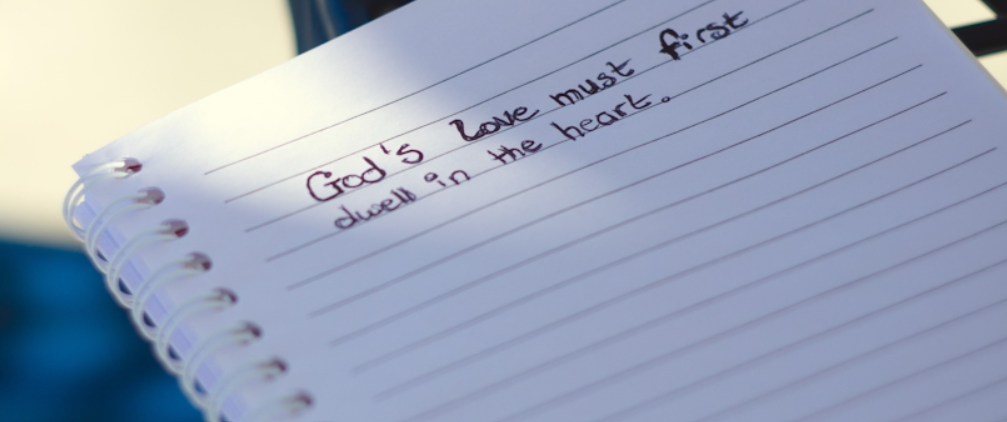 God's Love must first
dwell in the heart.